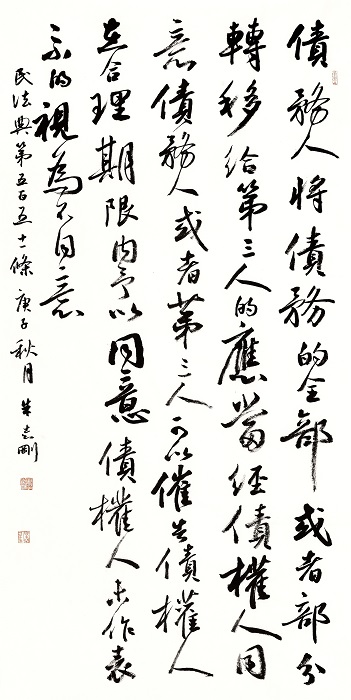 債務人將債務的全部或者部分
轉移給第三人的應當經債權人同
意債務人或者第三人可以催告債權人
在合理期限内予以同意債權人未作表
示的視為不同意
民法典第五百五十一條庚子秋月朱志剛